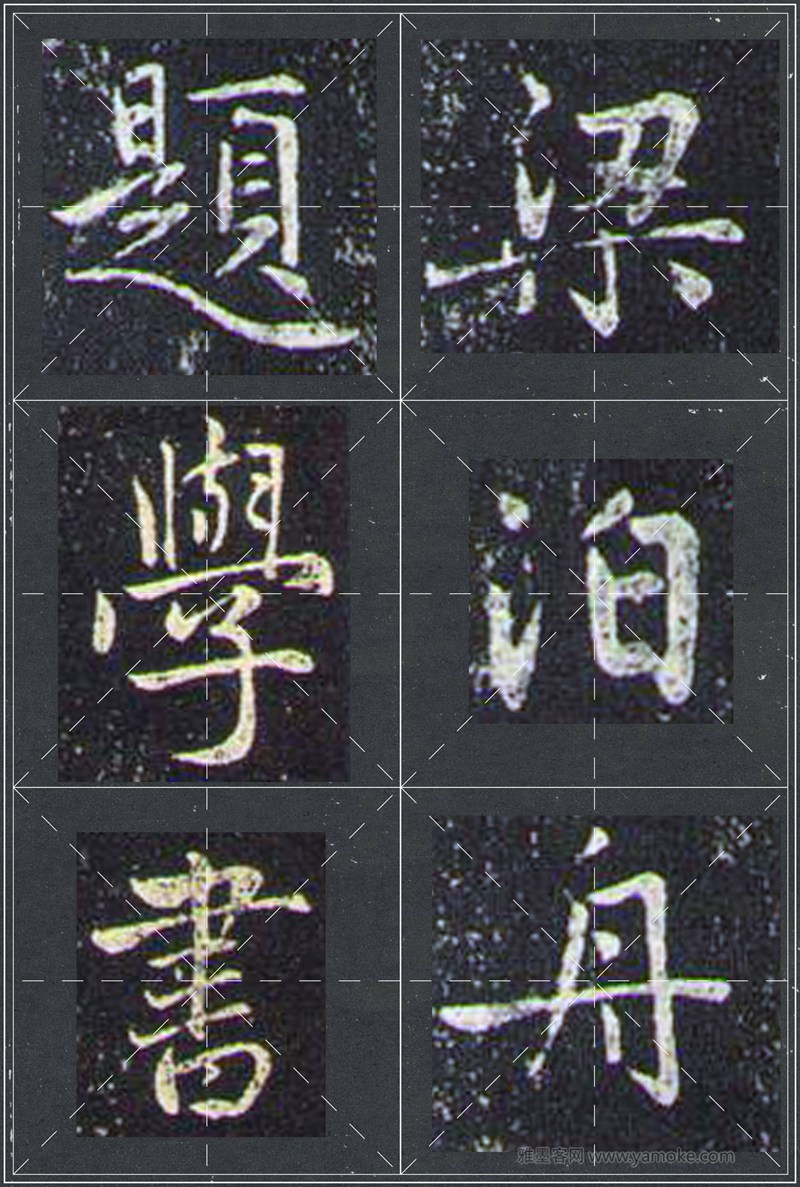 梁泊舟
題學書
雅墨客网 www.yamoke.com